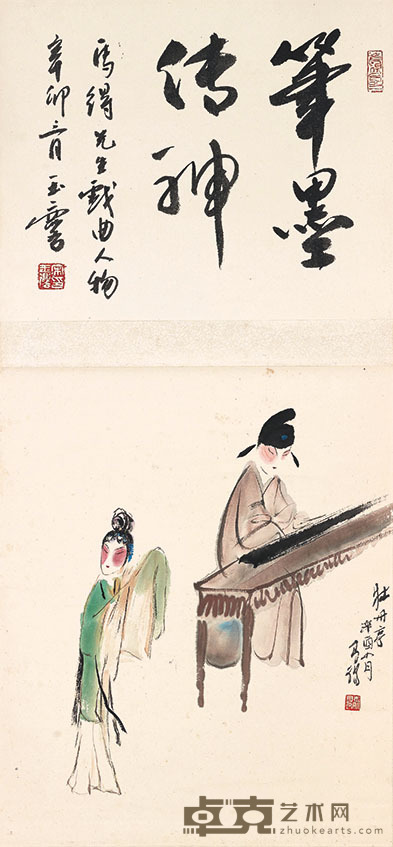 筆墨
传神
馬得先生戲曲人物
辛卯 月玉麐
牡丹亭
癸酉 月
馬得
卓克艺术网
zhuokearts.com